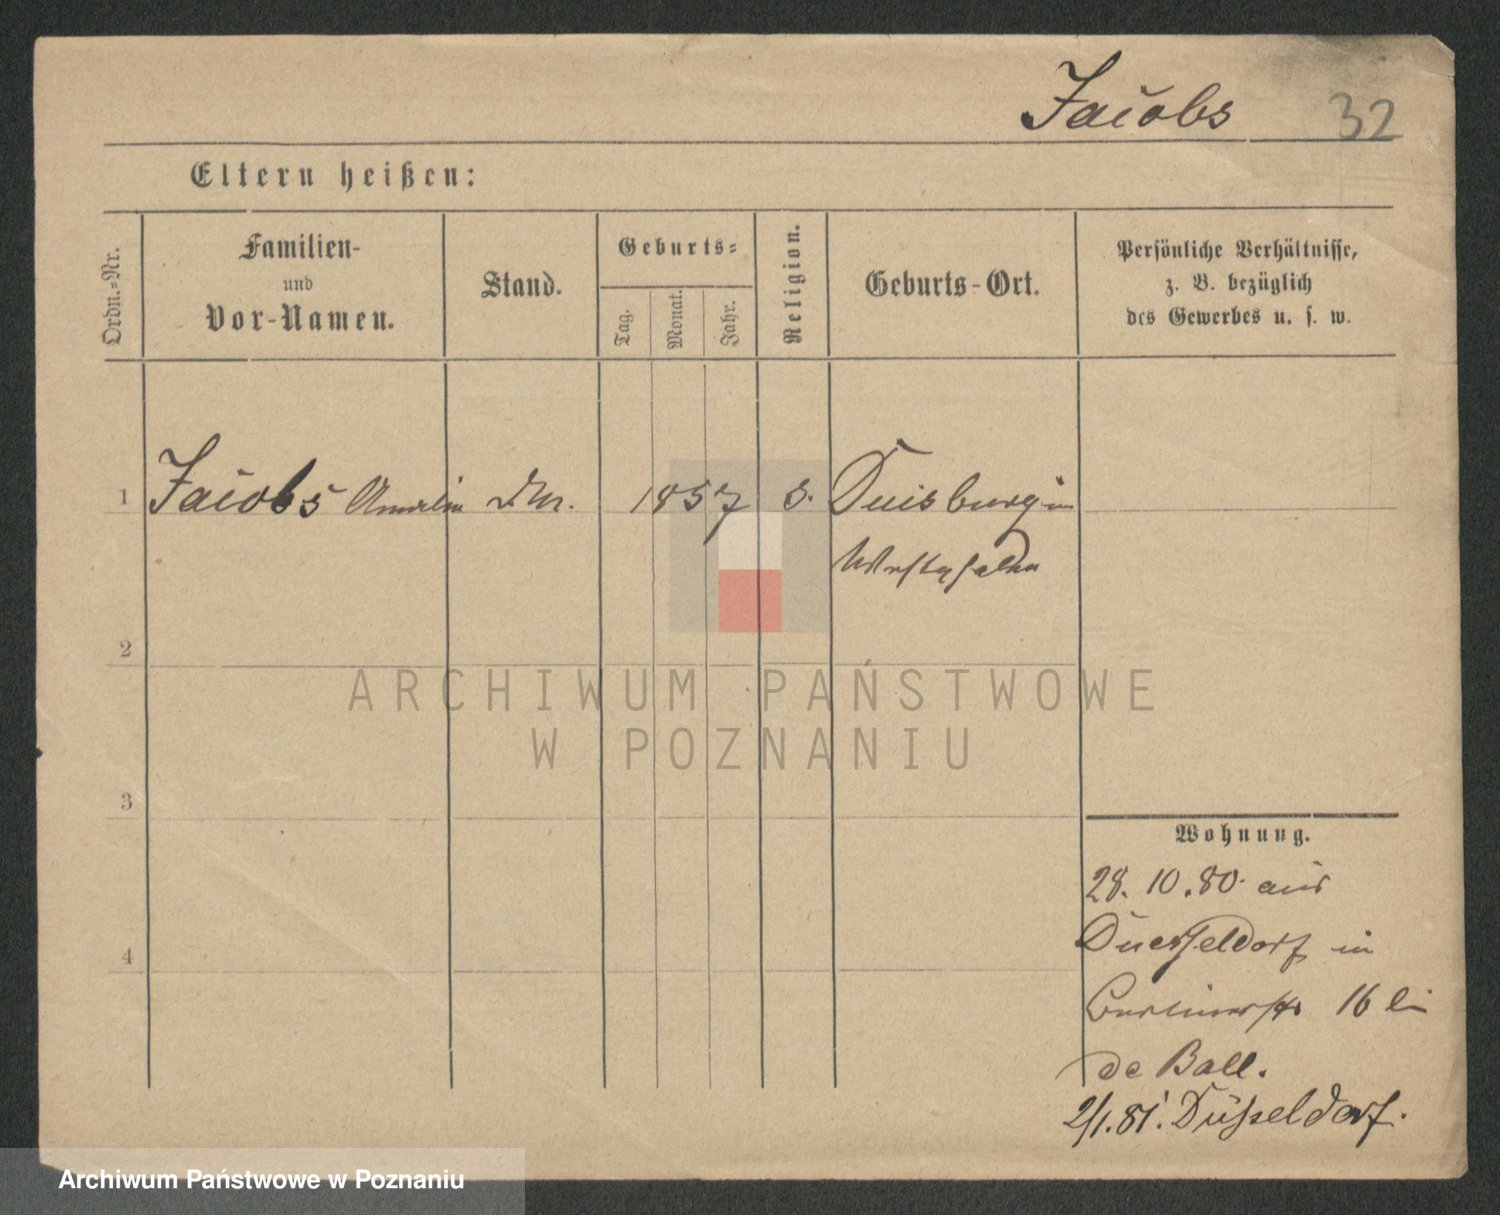 Jacobs 32
Eltern heißen:
Ordn.-Nr.
Familien-
und
Vor-Namen.
Stand.
Geburts-
Tag.
Monat.
Jahr.
Religion.
Geburts-Ort.
Persönliche Verhältnisse,
z. B. bezüglich
des Gewerbes u. s. w.
1 Jacobs 1857 Duisburg in
Westphalen
2
ARCHIWUM PAŃSTWOWE
W POZNANIU
3
Wohnung.
28. 10. 80. aus
4
Duesseldorf in
16
de Ball.
2/1. 81. Düsseldorf.
Archiwum Państwowe w Poznaniu